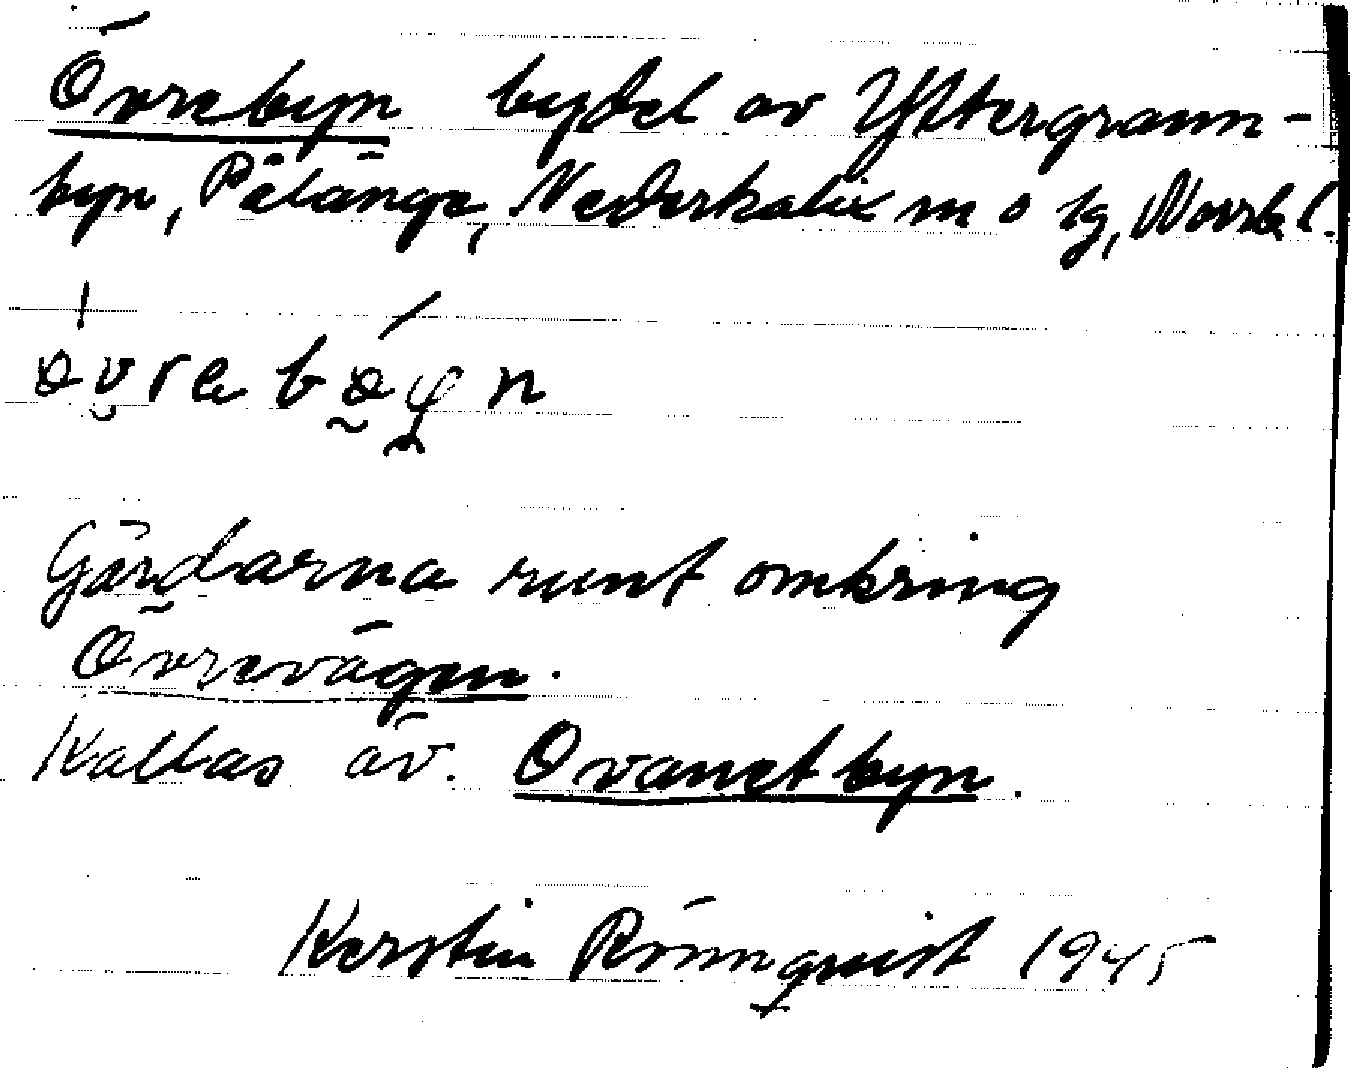 Övrebyn bydel av Yttergrann-
byn, Pålänge, Nederkalix sn o tg, Norrb. l.
Gårdarna runt omkring
Övrevägen.
Kallas äv. Ovanetbyn.
Kerstin Rönnqvist 1945